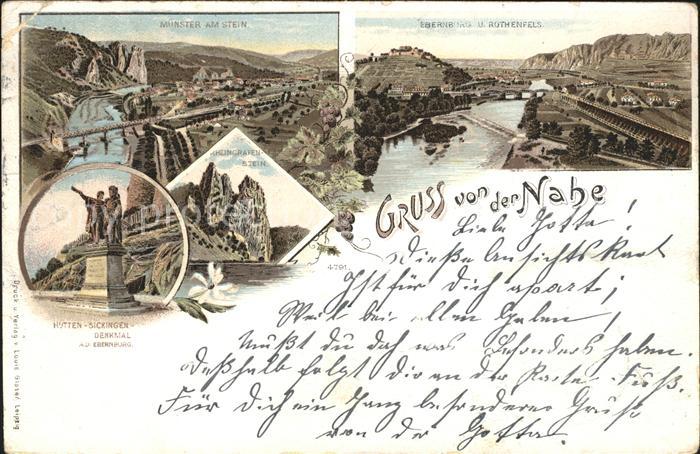 MÜNSTER AM STEIN.
EBERNBURG U. ROTHENFELS.
RHEINGRAFEN-
STEIN.
HUTTEN-SICKINGEN-
DENKMAL
A.D. EBERNBURG.
4791.
Druck u. Verlag v. Louis Glaser, Leipzig
GRUSS von der Nahe
Liebe Gotta!
Diese Ansichtskart
Ist für dich apart;
Weil bei allen
Mußt du das was besonders haben.
Deßhalb folgt dir an der Karte
Für dich ein ganz besonderer Gruß
von der Gotta.